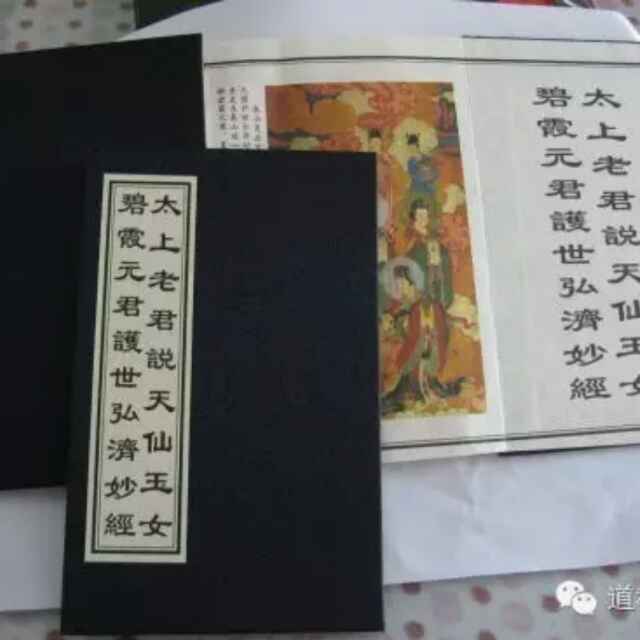 太上老君説天仙玉女
碧霞元君護世弘濟妙經
太上老君説天仙玉女
碧霞元君護世弘濟妙經
道